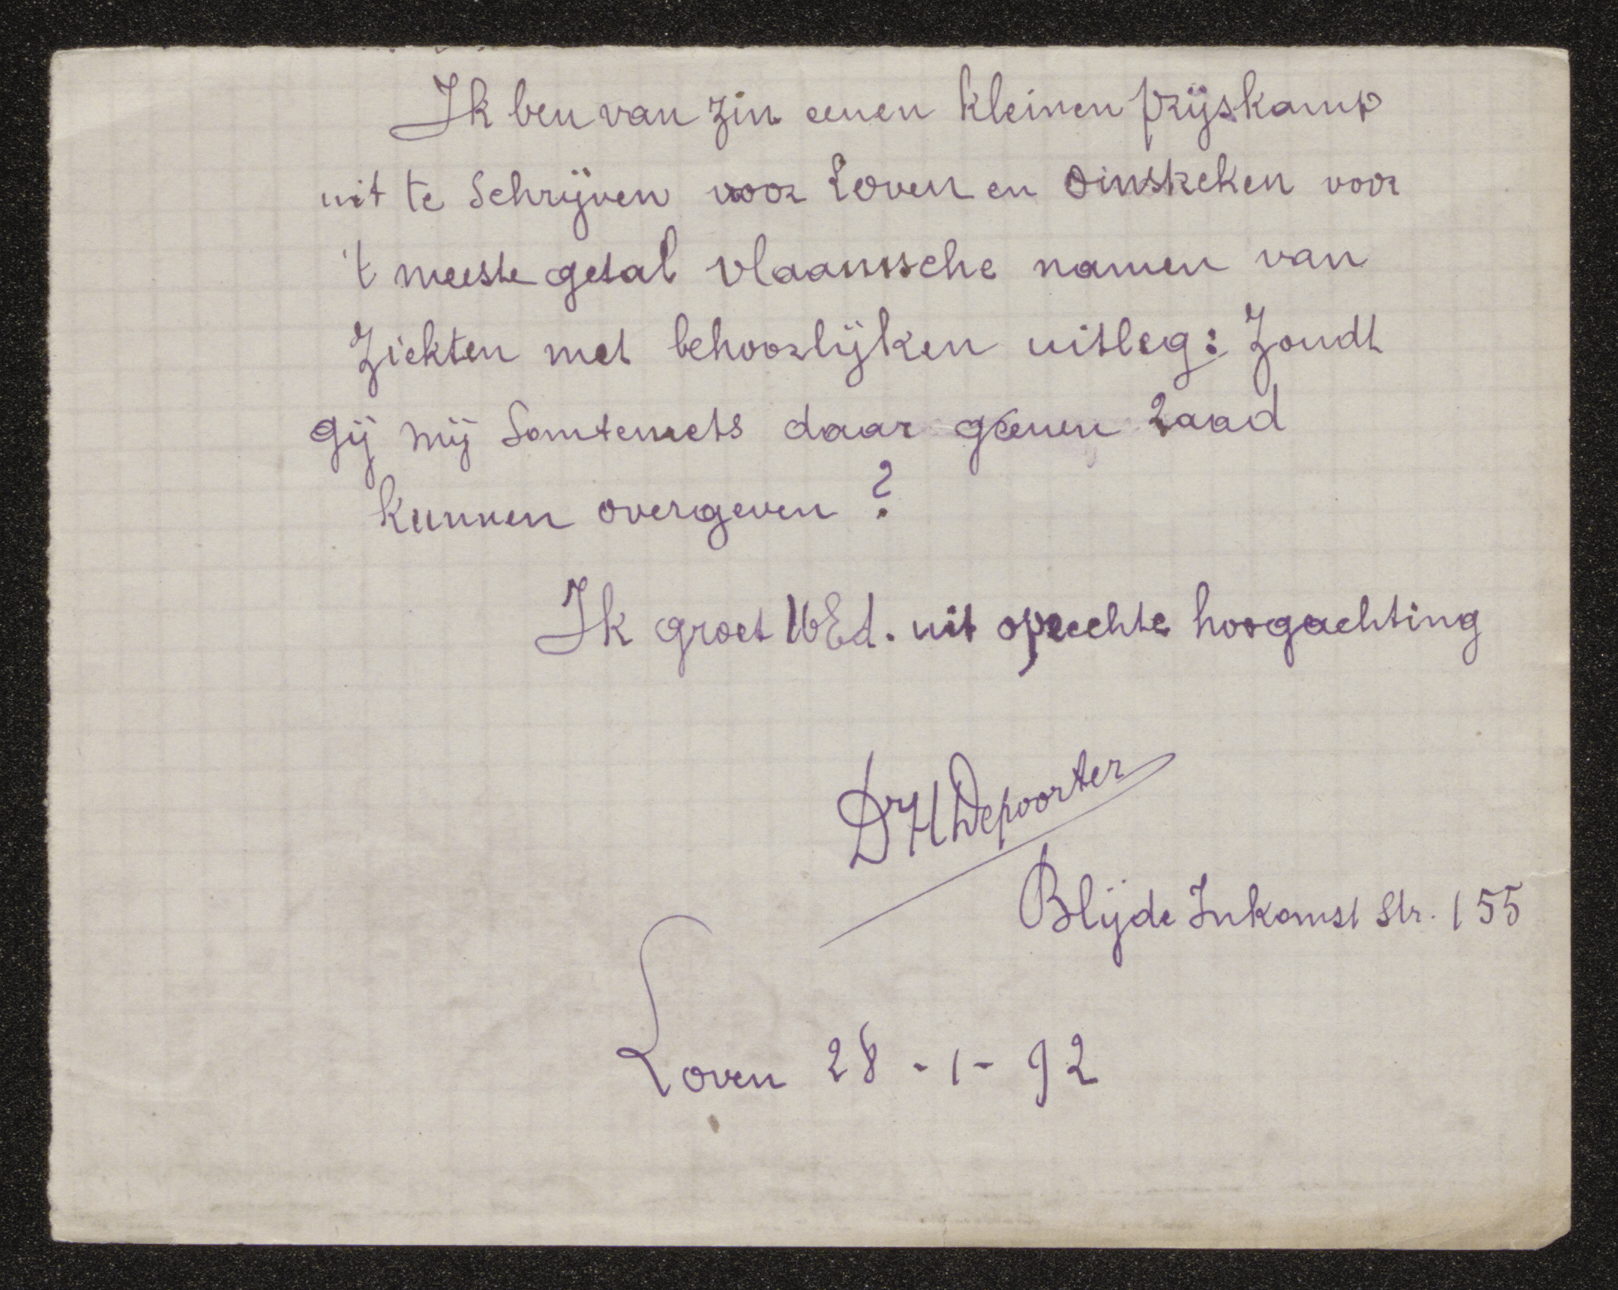 Ik ben van zin eenen kleinen prijskamp
uit te schrijven voor Loven en omstreken voor
't meeste getal vlaamsche namen van
Ziekten met behoorlijken uitleg: Zoudt
gij mij Somtemets daar geenen raad
kunnen overgeven?
Ik groet UEd. uit oprechte hoogachting
Dr H Depoorter
Blijde Inkomst Str. 155
Loven 28-1-92